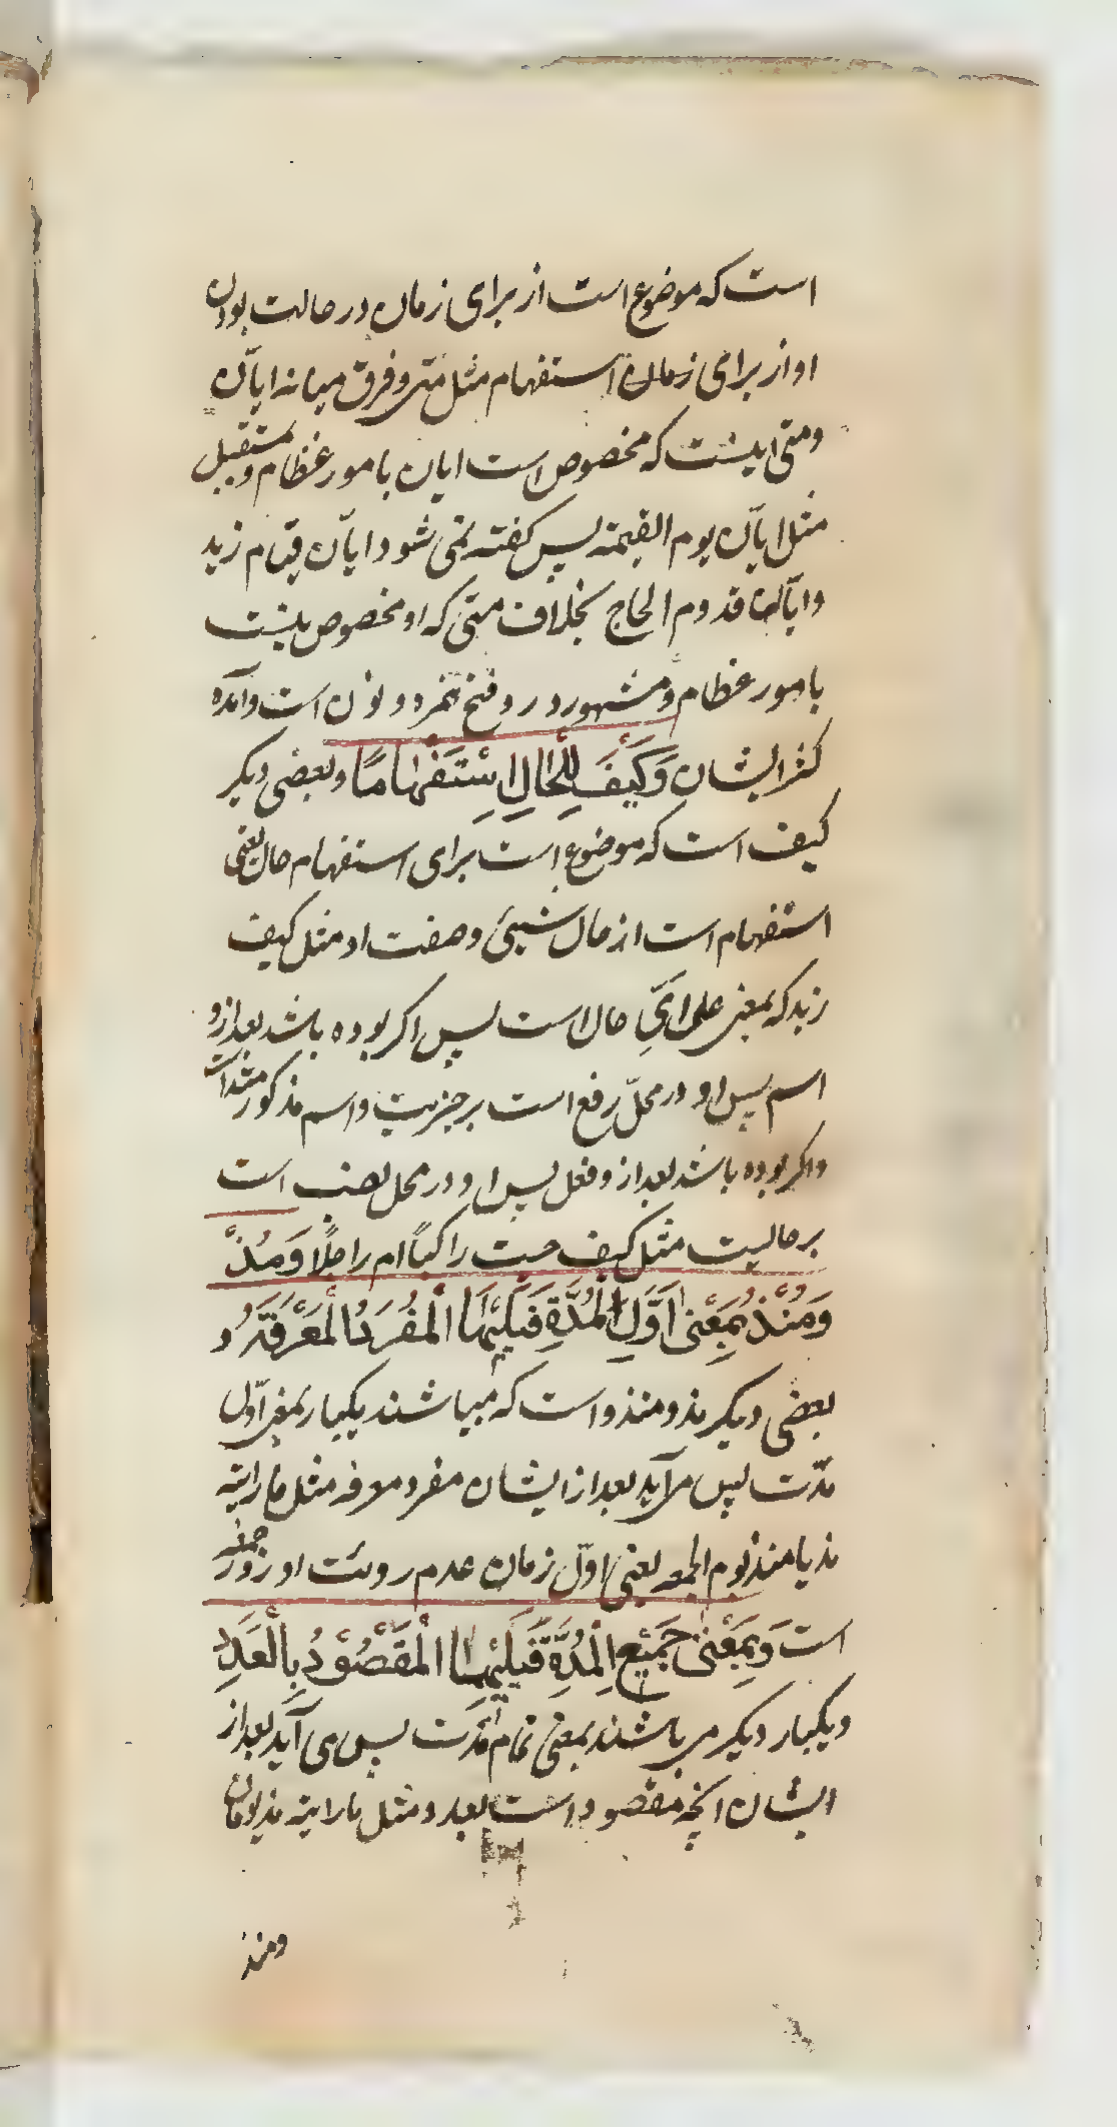 است که موضوع است از برای زمان در حالت بودن
او از برای زمان استفهام مثل متی و فرق میانه ایّان
و متی اینست که مخصوص است ایان بامور عظام و مستقبل
مثل ایّان یوم القیمة پس کفته نمی شود ایّان قیام زید
و ایّان قدوم الحاج بخلاف متی که او مخصوص نیست
بامور عظام و مشهور در و فتح همزه و نون است و آمده
کسر ایشان وَکَیْفَ لِلْحَالِ اِسْتِفْهَامًا و بعضی دیکر
کیف است که موضوع است برای استفهام حال یعنی
استفهام است از حال شیئ و صفت او مثل کیف
زید که بمعنی علی ایّ حال است پس اکر بوده باشد بعد از و
اسم پس او در محلّ رفع است بر خبریت و اسم مذکور مبتداست
و اکر بوده باشد بعد از و فعل پس او در محل نصب است
بر حالیت مثل کیف جئت راکباً ام راجلًا وَمُذْ
وَمُنْذُ بِمَعْنیٰ اَوَّلِ الْمُدَّةِ فَیَلِیْهِمَا الْمُفْرَدُ الْمَعْرِفَةُ و
بعضی دیکر مذ و منذ است که میباشند یکبار بمعنی اوّل
مدّت پس می آید بعد از ایشان مفرد معرفه مثل ما رایته
مذ یا منذ یوم الجمعه یعنی اوّل زمان عدم روئت او روز جمعه
است وَبِمَعْنیٰ جَمِیْعِ الْمُدَّةِ فَیَلِیْهِمَا الْمَقْصُوْدُ بِالْعَدَدِ
و یکبار دیکر می باشند بمعنی تمام مدّت پس می آید بعد از
ایشان آنچه مقصود است بعدد مثل ما رایته مذ یومان
ومنذ